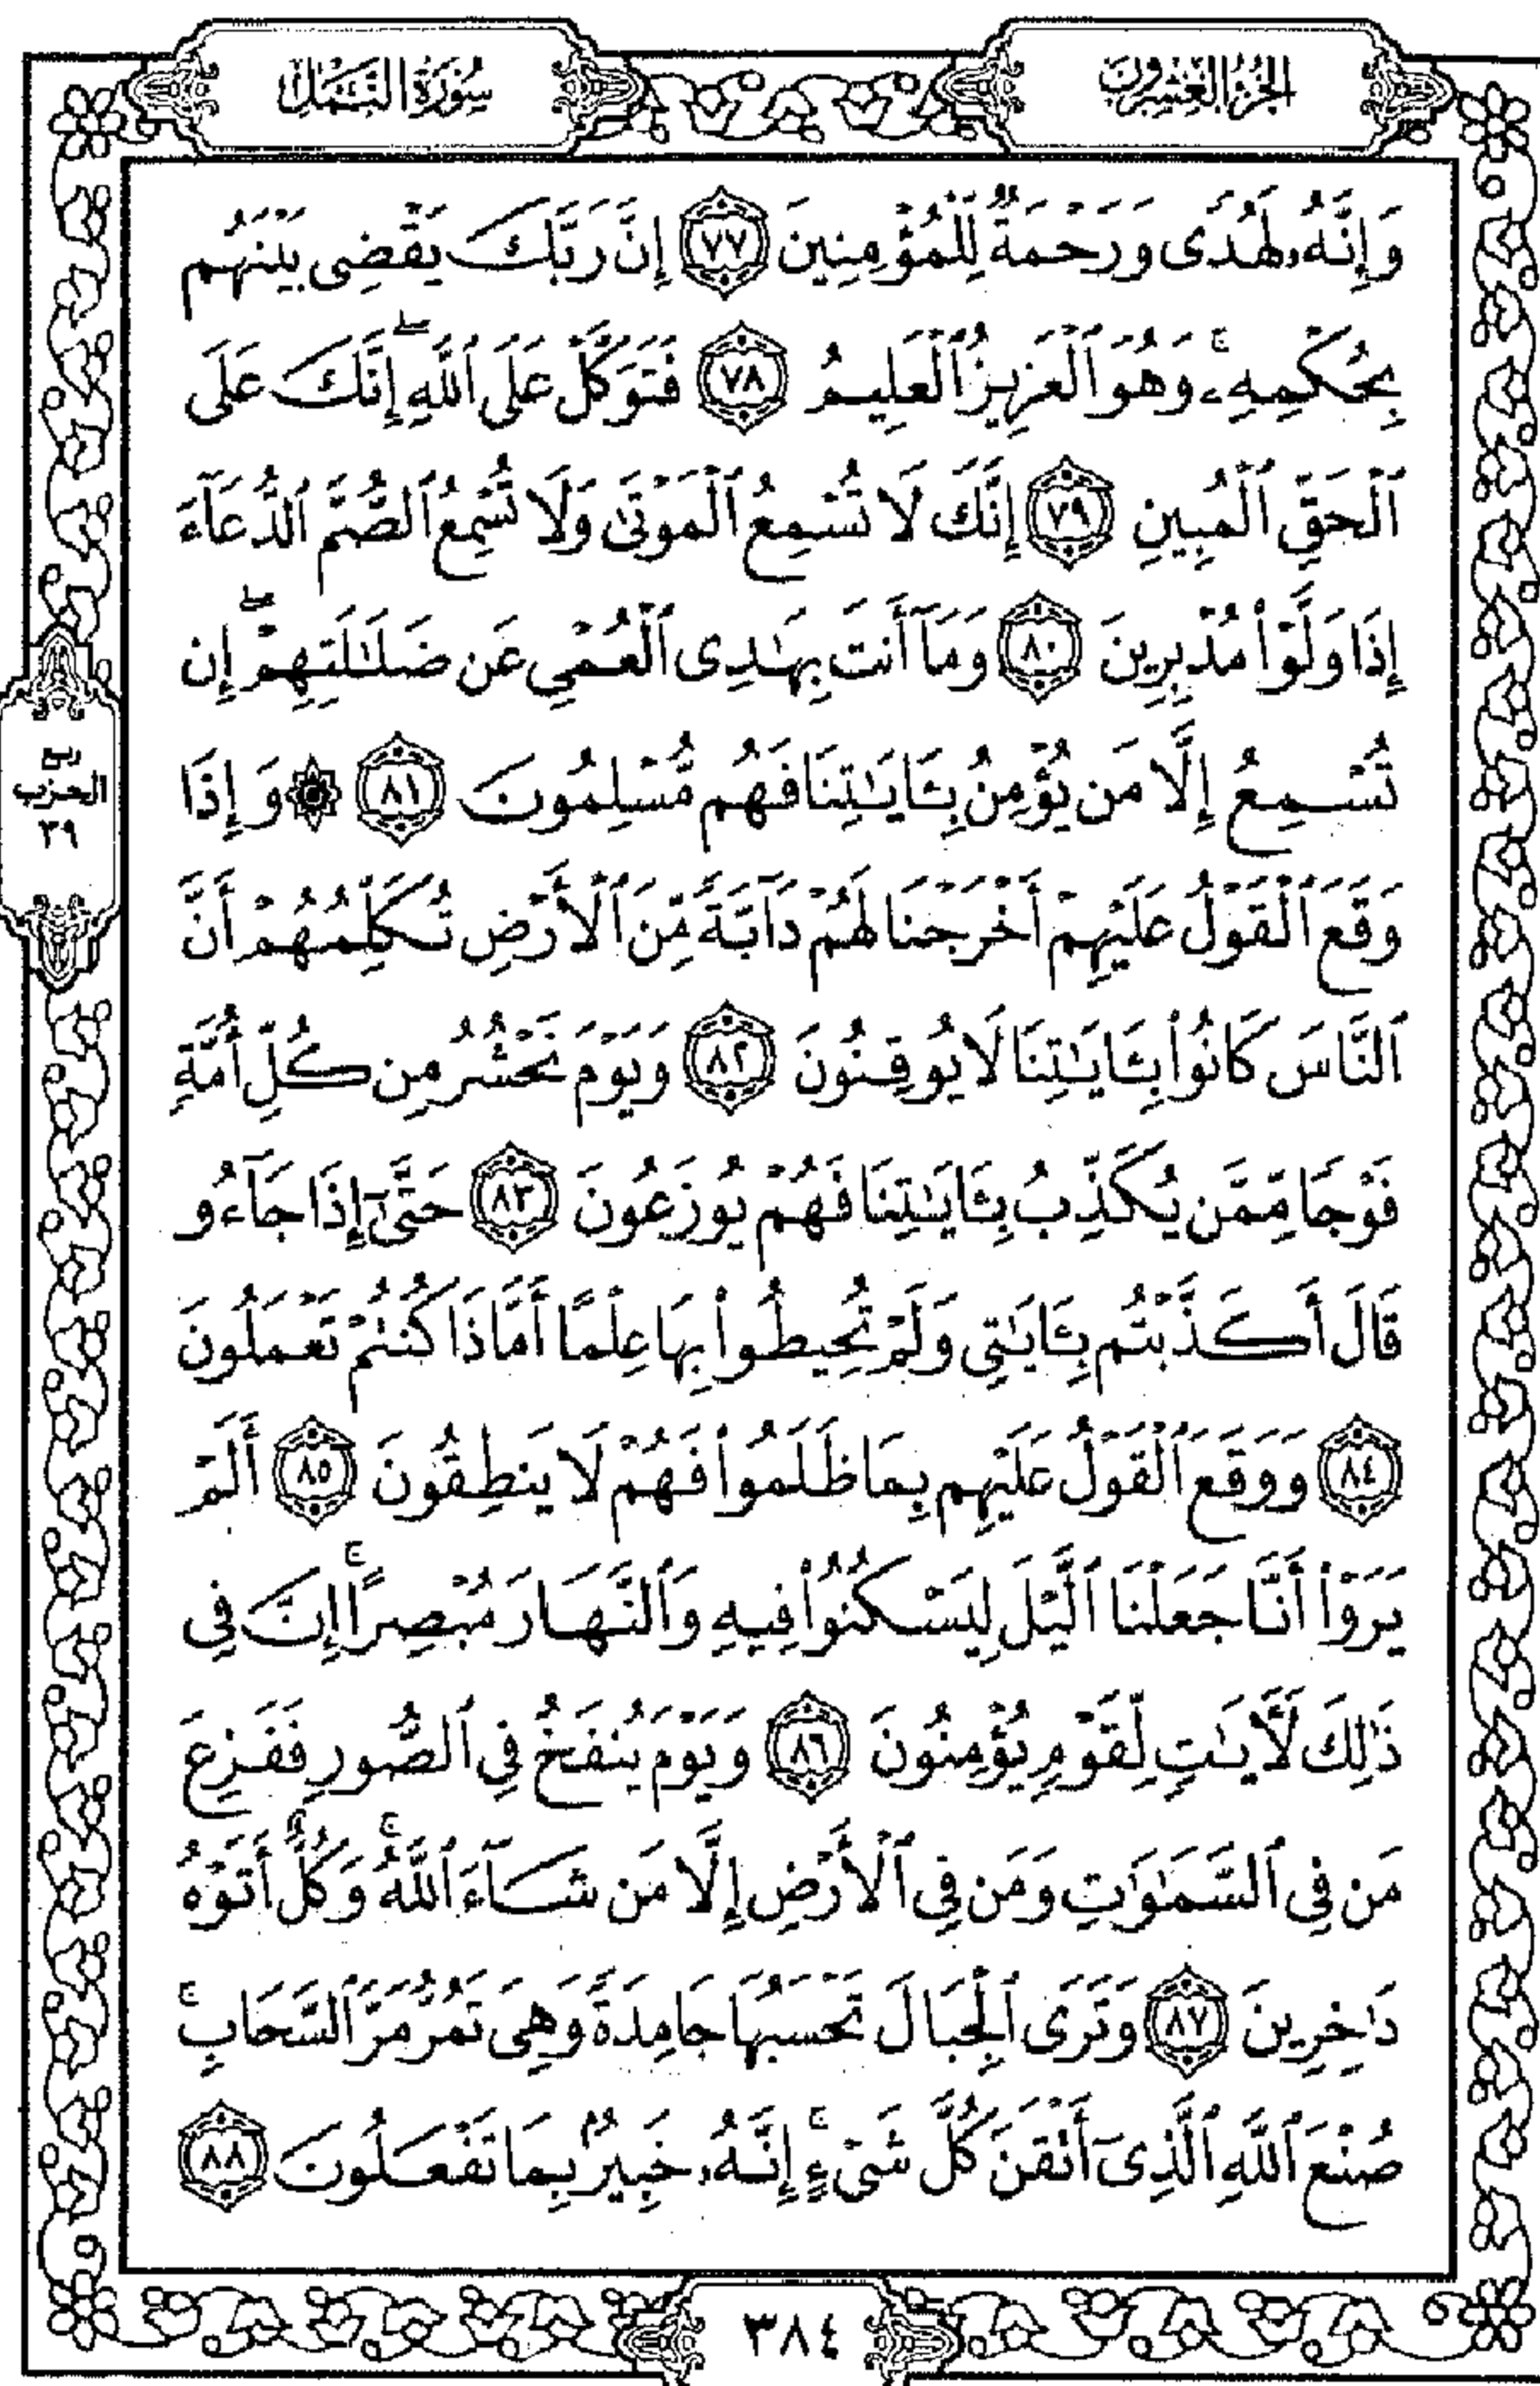 الجزء العشرون
سورة النمل
وَإِنَّهُۥ لَهُدًى وَرَحْمَةٌ لِّلْمُؤْمِنِينَ ٧٧ إِنَّ رَبَّكَ يَقْضِى بَيْنَهُم
بِحُكْمِهِۦۚ وَهُوَ ٱلْعَزِيزُ ٱلْعَلِيمُ ٧٨ فَتَوَكَّلْ عَلَى ٱللَّهِۖ إِنَّكَ عَلَى
ٱلْحَقِّ ٱلْمُبِينِ ٧٩ إِنَّكَ لَا تُسْمِعُ ٱلْمَوْتَىٰ وَلَا تُسْمِعُ ٱلصُّمَّ ٱلدُّعَآءَ
إِذَا وَلَّوْا۟ مُدْبِرِينَ ٨٠ وَمَآ أَنتَ بِهَـٰدِى ٱلْعُمْىِ عَن ضَلَـٰلَتِهِمْۖ إِن
تُسْمِعُ إِلَّا مَن يُؤْمِنُ بِـَٔايَـٰتِنَا فَهُم مُّسْلِمُونَ ٨١ ۞ وَإِذَا
وَقَعَ ٱلْقَوْلُ عَلَيْهِمْ أَخْرَجْنَا لَهُمْ دَآبَّةً مِّنَ ٱلْأَرْضِ تُكَلِّمُهُمْ أَنَّ
ٱلنَّاسَ كَانُوا۟ بِـَٔايَـٰتِنَا لَا يُوقِنُونَ ٨٢ وَيَوْمَ نَحْشُرُ مِن كُلِّ أُمَّةٍ
فَوْجًا مِّمَّن يُكَذِّبُ بِـَٔايَـٰتِنَا فَهُمْ يُوزَعُونَ ٨٣ حَتَّىٰٓ إِذَا جَآءُو
قَالَ أَكَذَّبْتُم بِـَٔايَـٰتِى وَلَمْ تُحِيطُوا۟ بِهَا عِلْمًا أَمَّاذَا كُنتُمْ تَعْمَلُونَ
٨٤ وَوَقَعَ ٱلْقَوْلُ عَلَيْهِم بِمَا ظَلَمُوا۟ فَهُمْ لَا يَنطِقُونَ ٨٥ أَلَمْ
يَرَوْا۟ أَنَّا جَعَلْنَا ٱلَّيْلَ لِيَسْكُنُوا۟ فِيهِ وَٱلنَّهَارَ مُبْصِرًاۚ إِنَّ فِى
ذَٰلِكَ لَـَٔايَـٰتٍ لِّقَوْمٍ يُؤْمِنُونَ ٨٦ وَيَوْمَ يُنفَخُ فِى ٱلصُّورِ فَفَزِعَ
مَن فِى ٱلسَّمَـٰوَٰتِ وَمَن فِى ٱلْأَرْضِ إِلَّا مَن شَآءَ ٱللَّهُۚ وَكُلٌّ أَتَوْهُ
دَٰخِرِينَ ٨٧ وَتَرَى ٱلْجِبَالَ تَحْسَبُهَا جَامِدَةً وَهِىَ تَمُرُّ مَرَّ ٱلسَّحَابِۚ
صُنْعَ ٱللَّهِ ٱلَّذِىٓ أَتْقَنَ كُلَّ شَىْءٍۚ إِنَّهُۥ خَبِيرٌۢ بِمَا تَفْعَلُونَ ٨٨
ربع
الحزب
٣٩
٣٨٤